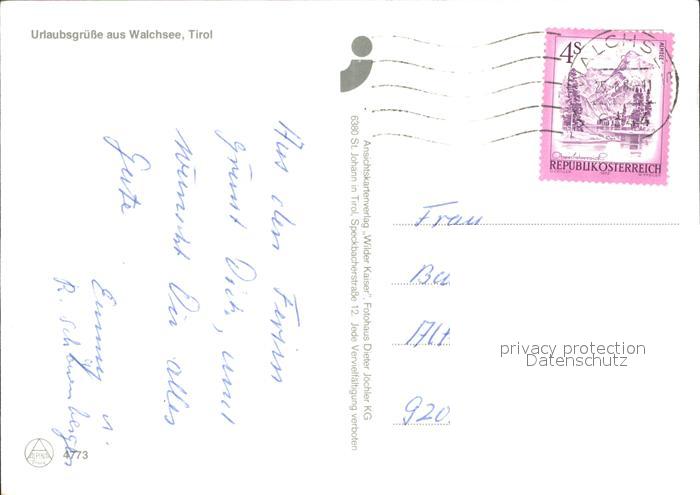 Urlaubsgrüße aus Walchsee, Tirol
Aus den Ferien
grüsst Dich, und
wünscht Dir alles
Gute
Emmy u.
R. Schönenberger
Ansichtskartenverlag „Wilder Kaiser", Fotohaus Dieter Jöchler KG
6380 St. Johann in Tirol, Speckbacherstraße 12. Jede Vervielfältigung verboten
WALCHSEE
4S
ALMSEE
Oberösterreich
REPUBLIK ÖSTERREICH
Frau
Ba
Alt
920
privacy protection
Datenschutz
4773